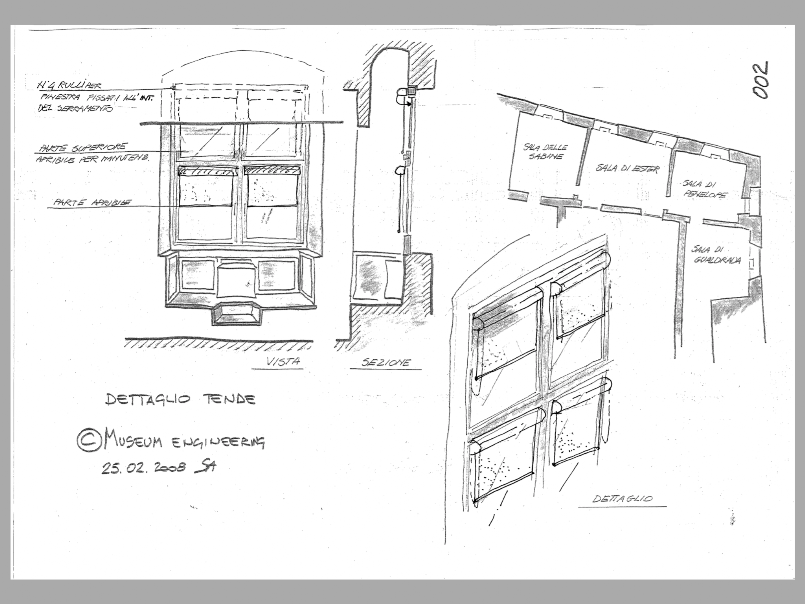 002
N°4 RULLI PER
FINESTRA FISSATI ALL'INT.
DEL SERRAMENTO
PARTE SUPERIORE
APRIBILE PER MANUTENB.
PARTE APRIBILE
VISTA
SEZIONE
SALA DELLE
SABINE
SALA DI ESTER
SALA DI
PENELOPE
SALA DI
GUALDRADA
DETTAGLIO TENDE
© MUSEUM ENGINEERING
25.02.2008 SA
DETTAGLIO